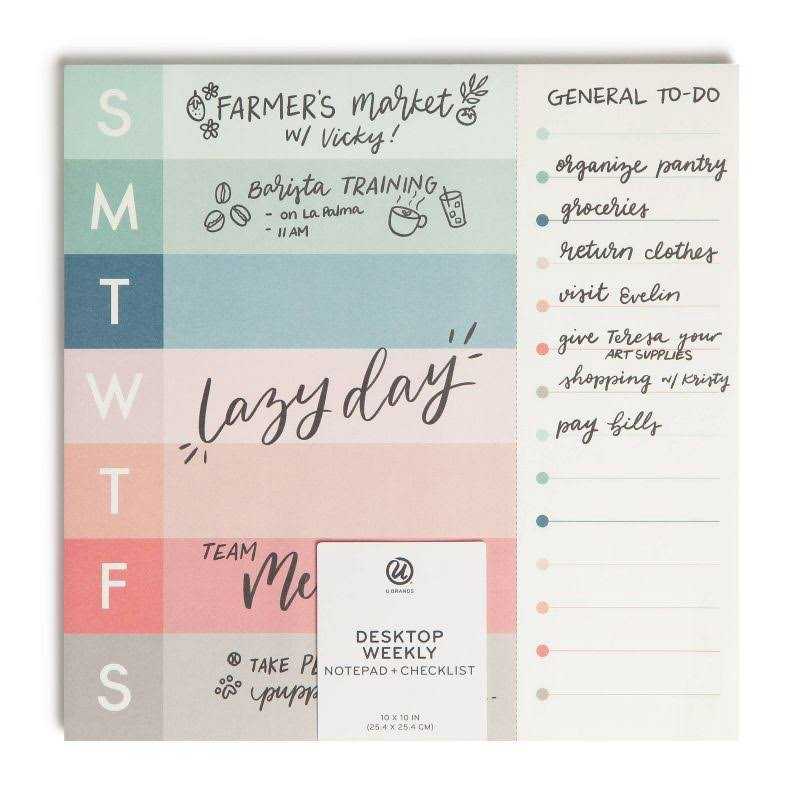 S
FARMER'S market
w/ Vicky!
M
Barista TRAINING
- on La Palma
- 11 AM
T
W
lazy day
T
F
TEAM
S
TAKE
GENERAL TO-DO
organize pantry
groceries
return clothes
visit Evelin
give Teresa your
ART SUPPLIES
shopping w/ Kristy
pay bills
U BRANDS
DESKTOP
WEEKLY
NOTEPAD + CHECKLIST
10 X 10 IN
(25.4 X 25.4 CM)